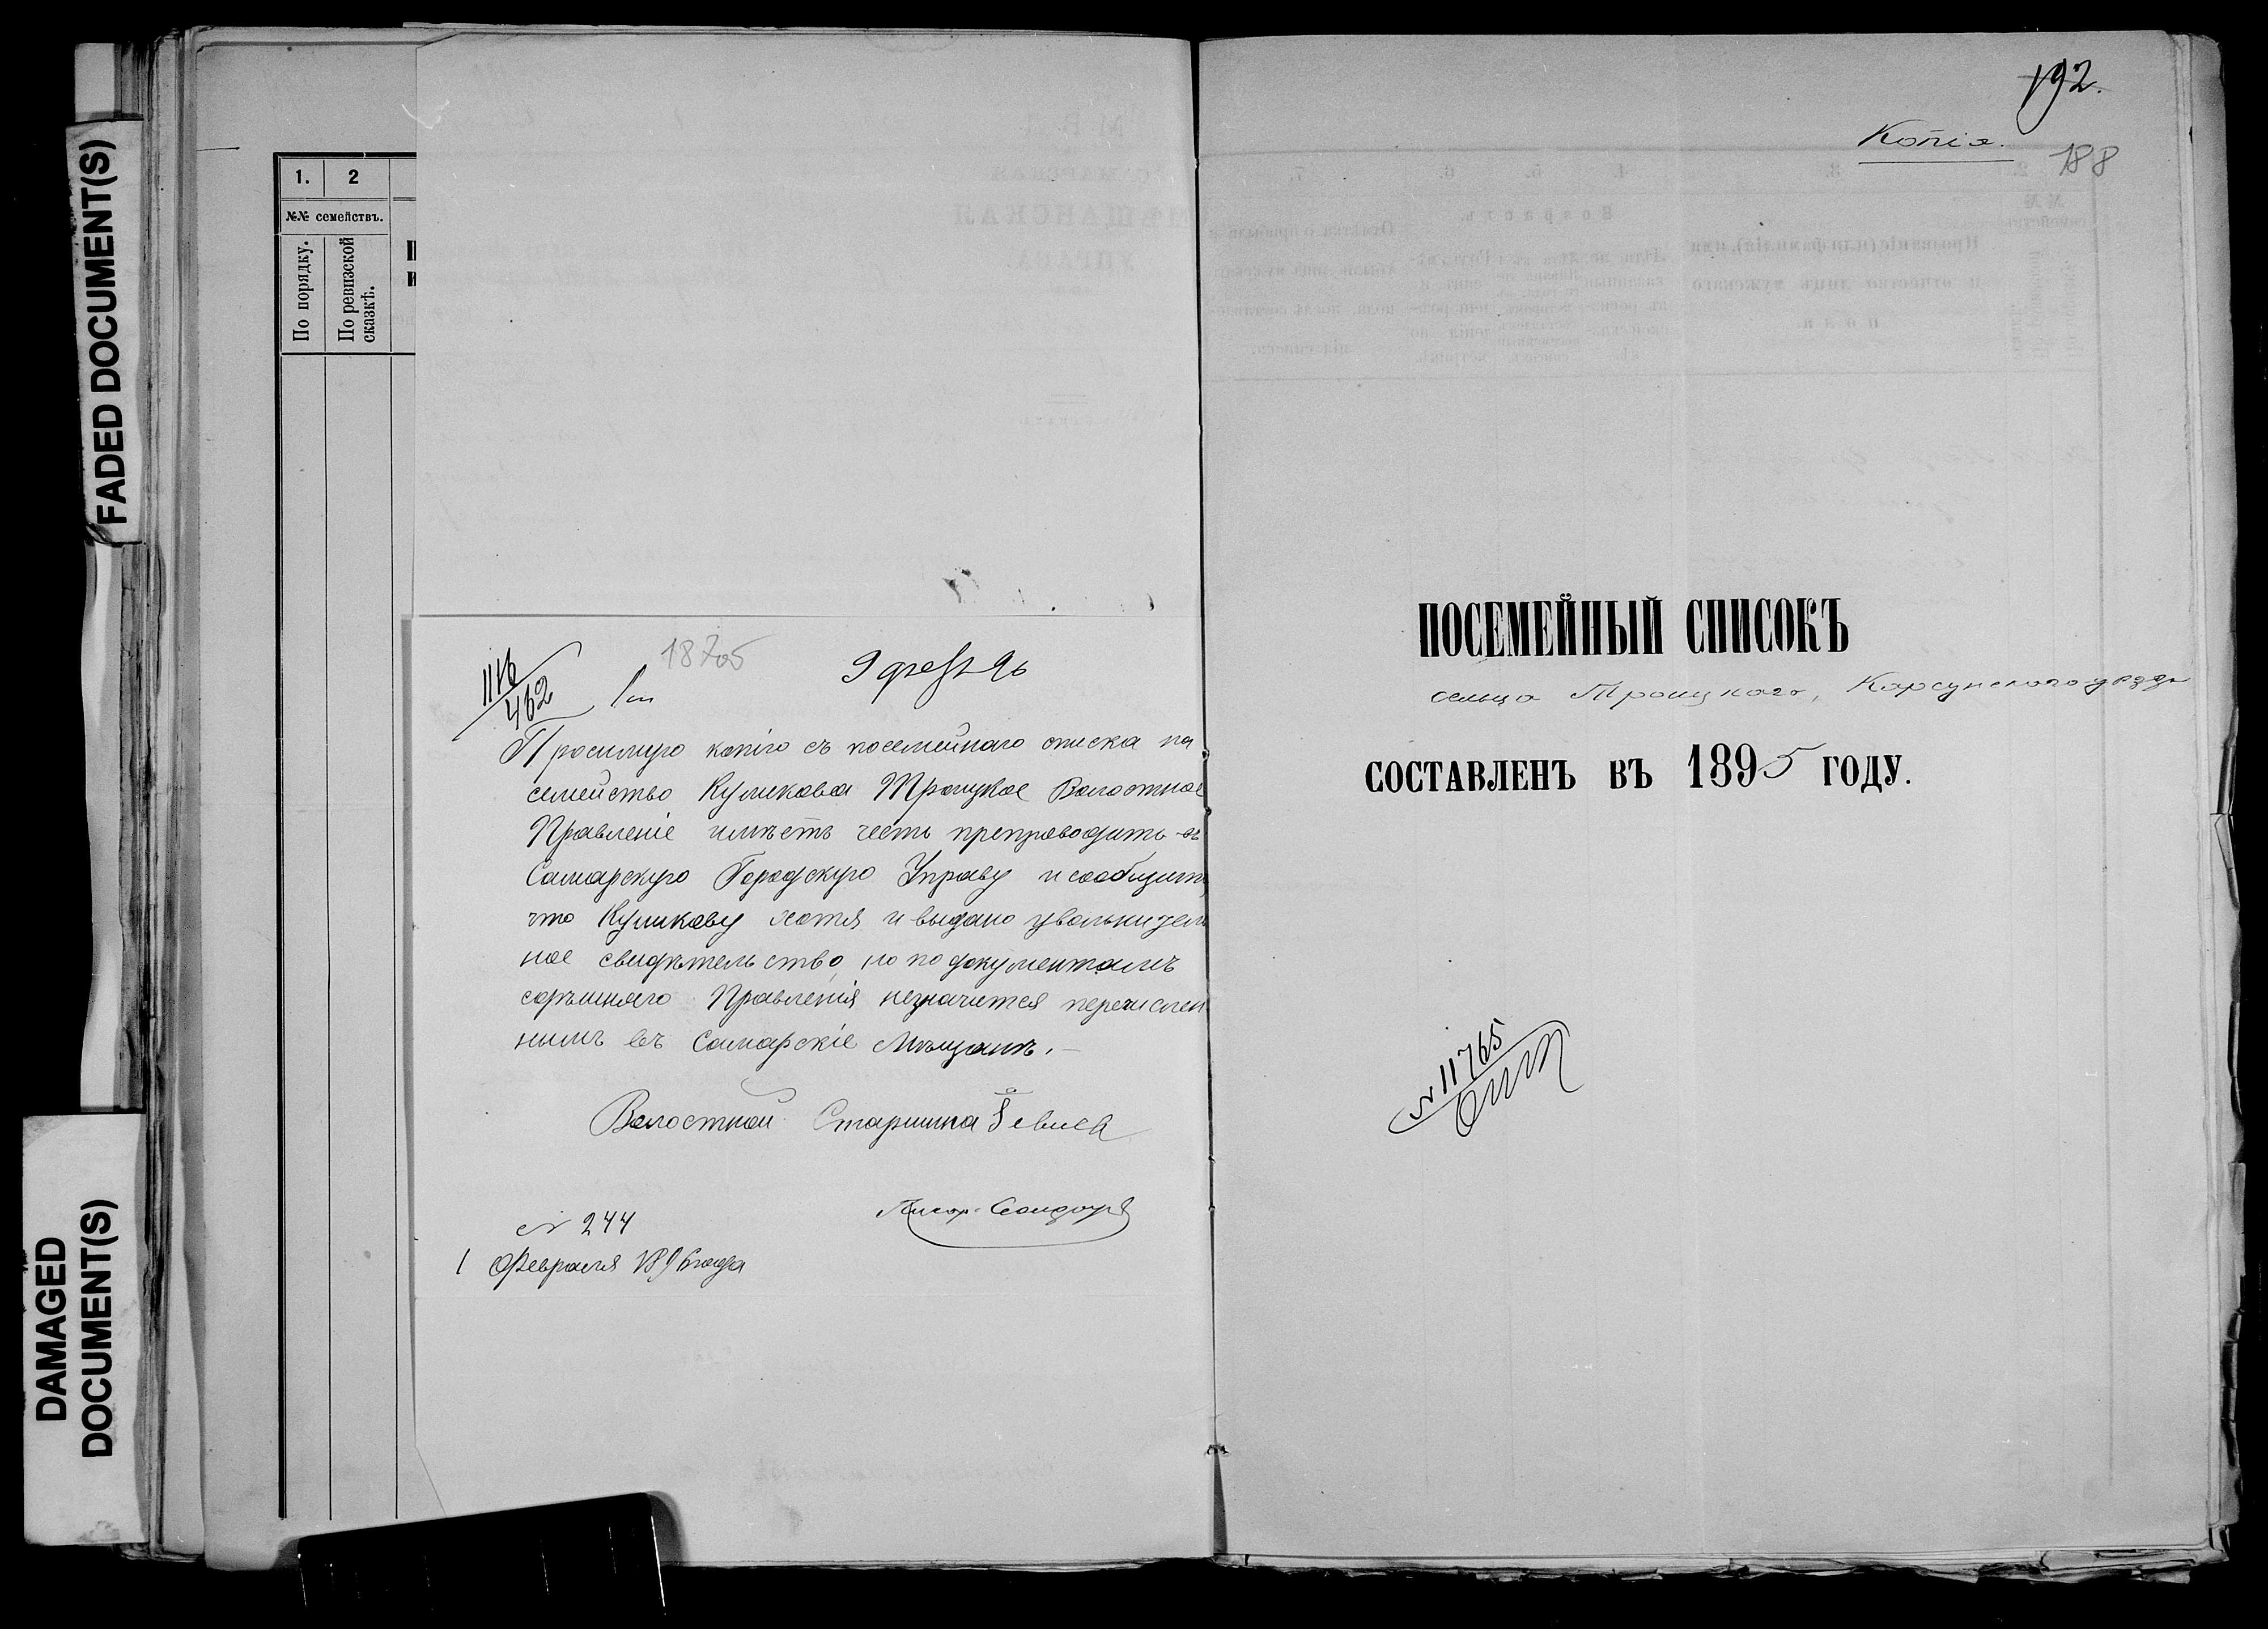 FADED DOCUMENT(S)
DAMAGED
DOCUMENT(S)
1. 2
№№ семействъ.
По порядку.
По ревизской
сказкѣ.
1116
462
18705
9 февр 96
Просимую копію съ посемейнаго списка на
семейство Куликова Троицкое Волостное
Правленіе имѣетъ честь препроводить въ
Самарскую Городскую Управу и сообщить
что Куликову хотя и выдано увольнитель
ное свидѣтельство, но по документамъ
здѣшняго Правленія незначится перечислен
нымъ въ Самарскіе Мѣщане.
Волостной Старшина
Писарь
№ 244
1 Февраля 1896 года
192.
Копія.
188
ПОСЕМЕЙНЫЙ СПИСОКЪ
сельца Троицкаго, Карсунскаго уѣзда
СОСТАВЛЕНЪ ВЪ 1895 ГОДУ.
№ 11765